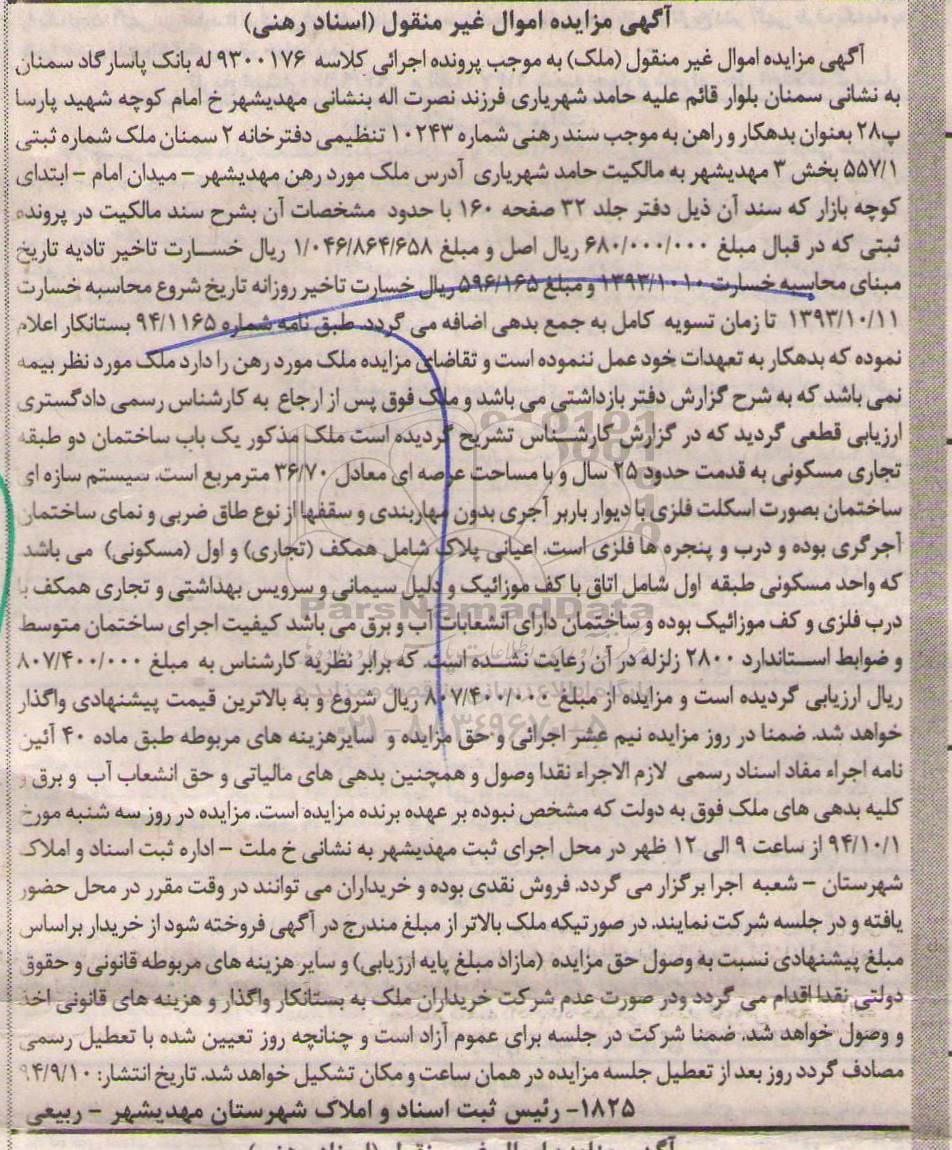 آگهی مزایده اموال غیر منقول (اسناد رهنی)
آگهی مزایده اموال غیر منقول (ملک) به موجب پرونده اجرائی کلاسه ۹۳۰۰۱۷۶ له بانک پاسارگاد سمنان
به نشانی سمنان بلوار قائم علیه حامد شهریاری فرزند نصرت اله بنشانی مهدیشهر خ امام کوچه شهید پارسا
پ۲۸ بعنوان بدهکار و راهن به موجب سند رهنی شماره ۱۰۲۴۳ تنظیمی دفترخانه ۲ سمنان ملک شماره ثبتی
۵۵۷/۱ بخش ۳ مهدیشهر به مالکیت حامد شهریاری آدرس ملک مورد رهن مهدیشهر – میدان امام – ابتدای
کوچه بازار که سند آن ذیل دفتر جلد ۳۲ صفحه ۱۶۰ با حدود مشخصات آن بشرح سند مالکیت در پرونده
ثبتی که در قبال مبلغ ۶۸۰/۰۰۰/۰۰۰ ریال اصل و مبلغ ۱/۰۴۶/۸۶۴/۶۵۸ ریال خسارت تاخیر تادیه تاریخ
مبنای محاسبه خسارت ۱۳۹۳/۱۰۱۰ و مبلغ ۵۹۶/۱۶۵ ریال خسارت تاخیر روزانه تاریخ شروع محاسبه خسارت
۱۳۹۳/۱۰/۱۱ تا زمان تسویه کامل به جمع بدهی اضافه می گردد. طبق نامه شماره ۹۴/۱۱۶۵ بستانکار اعلام
نموده که بدهکار به تعهدات خود عمل ننموده است و تقاضای مزایده ملک مورد رهن را دارد ملک مورد نظر بیمه
نمی باشد که به شرح گزارش دفتر بازداشتی می باشد و ملک فوق پس از ارجاع به کارشناس رسمی دادگستری
ارزیابی قطعی گردید که در گزارش کارشناس تشریح گردیده است ملک مذکور یک باب ساختمان دو طبقه
تجاری مسکونی به قدمت حدود ۲۵ سال و با مساحت عرصه ای معادل ۳۶/۷۰ مترمربع است. سیستم سازه ای
ساختمان بصورت اسکلت فلزی با دیوار باربر آجری بدون مهاربندی و سقفها از نوع طاق ضربی و نمای ساختمان
آجرگری بوده و درب و پنجره ها فلزی است. اعیانی پلاک شامل همکف (تجاری) و اول (مسکونی) می باشد
که واحد مسکونی طبقه اول شامل اتاق با کف موزائیک و دلیل سیمانی و سرویس بهداشتی و تجاری همکف با
درب فلزی و کف موزائیک بوده و ساختمان دارای انشعابات آب و برق می باشد کیفیت اجرای ساختمان متوسط
و ضوابط استاندارد ۲۸۰۰ زلزله در آن رعایت نشده است. که برابر نظریه کارشناس به مبلغ ۸۰۷/۴۰۰/۰۰۰
ریال ارزیابی گردیده است و مزایده از مبلغ ۸۰۷/۴۰۰/۰۰۰ ریال شروع و به بالاترین قیمت پیشنهادی واگذار
خواهد شد. ضمنا در روز مزایده نیم عشر اجرائی و حق مزایده و سایرهزینه های مربوطه طبق ماده ۴۰ آئین
نامه اجراء مفاد اسناد رسمی لازم الاجراء نقدا وصول و همچنین بدهی های مالیاتی و حق انشعاب آب و برق و
کلیه بدهی های ملک فوق به دولت که مشخص نبوده بر عهده برنده مزایده است. مزایده در روز سه شنبه مورخ
۹۴/۱۰/۱ از ساعت ۹ الی ۱۲ ظهر در محل اجرای ثبت مهدیشهر به نشانی خ ملت – اداره ثبت اسناد و املاک
شهرستان – شعبه اجرا برگزار می گردد. فروش نقدی بوده و خریداران می توانند در وقت مقرر در محل حضور
یافته و در جلسه شرکت نمایند. در صورتیکه ملک بالاتر از مبلغ مندرج در آگهی فروخته شود از خریدار براساس
مبلغ پیشنهادی نسبت به وصول حق مزایده (مازاد مبلغ پایه ارزیابی) و سایر هزینه های مربوطه قانونی و حقوق
دولتی نقدا اقدام می گردد ودر صورت عدم شرکت خریداران ملک به بستانکار واگذار و هزینه های قانونی اخذ
و وصول خواهد شد. ضمنا شرکت در جلسه برای عموم آزاد است و چنانچه روز تعیین شده با تعطیل رسمی
مصادف گردد روز بعد از تعطیل جلسه مزایده در همان ساعت و مکان تشکیل خواهد شد. تاریخ انتشار: ۹۴/۹/۱۰
۱۸۲۵- رئیس ثبت اسناد و املاک شهرستان مهدیشهر – ربیعی
ParsNamadData